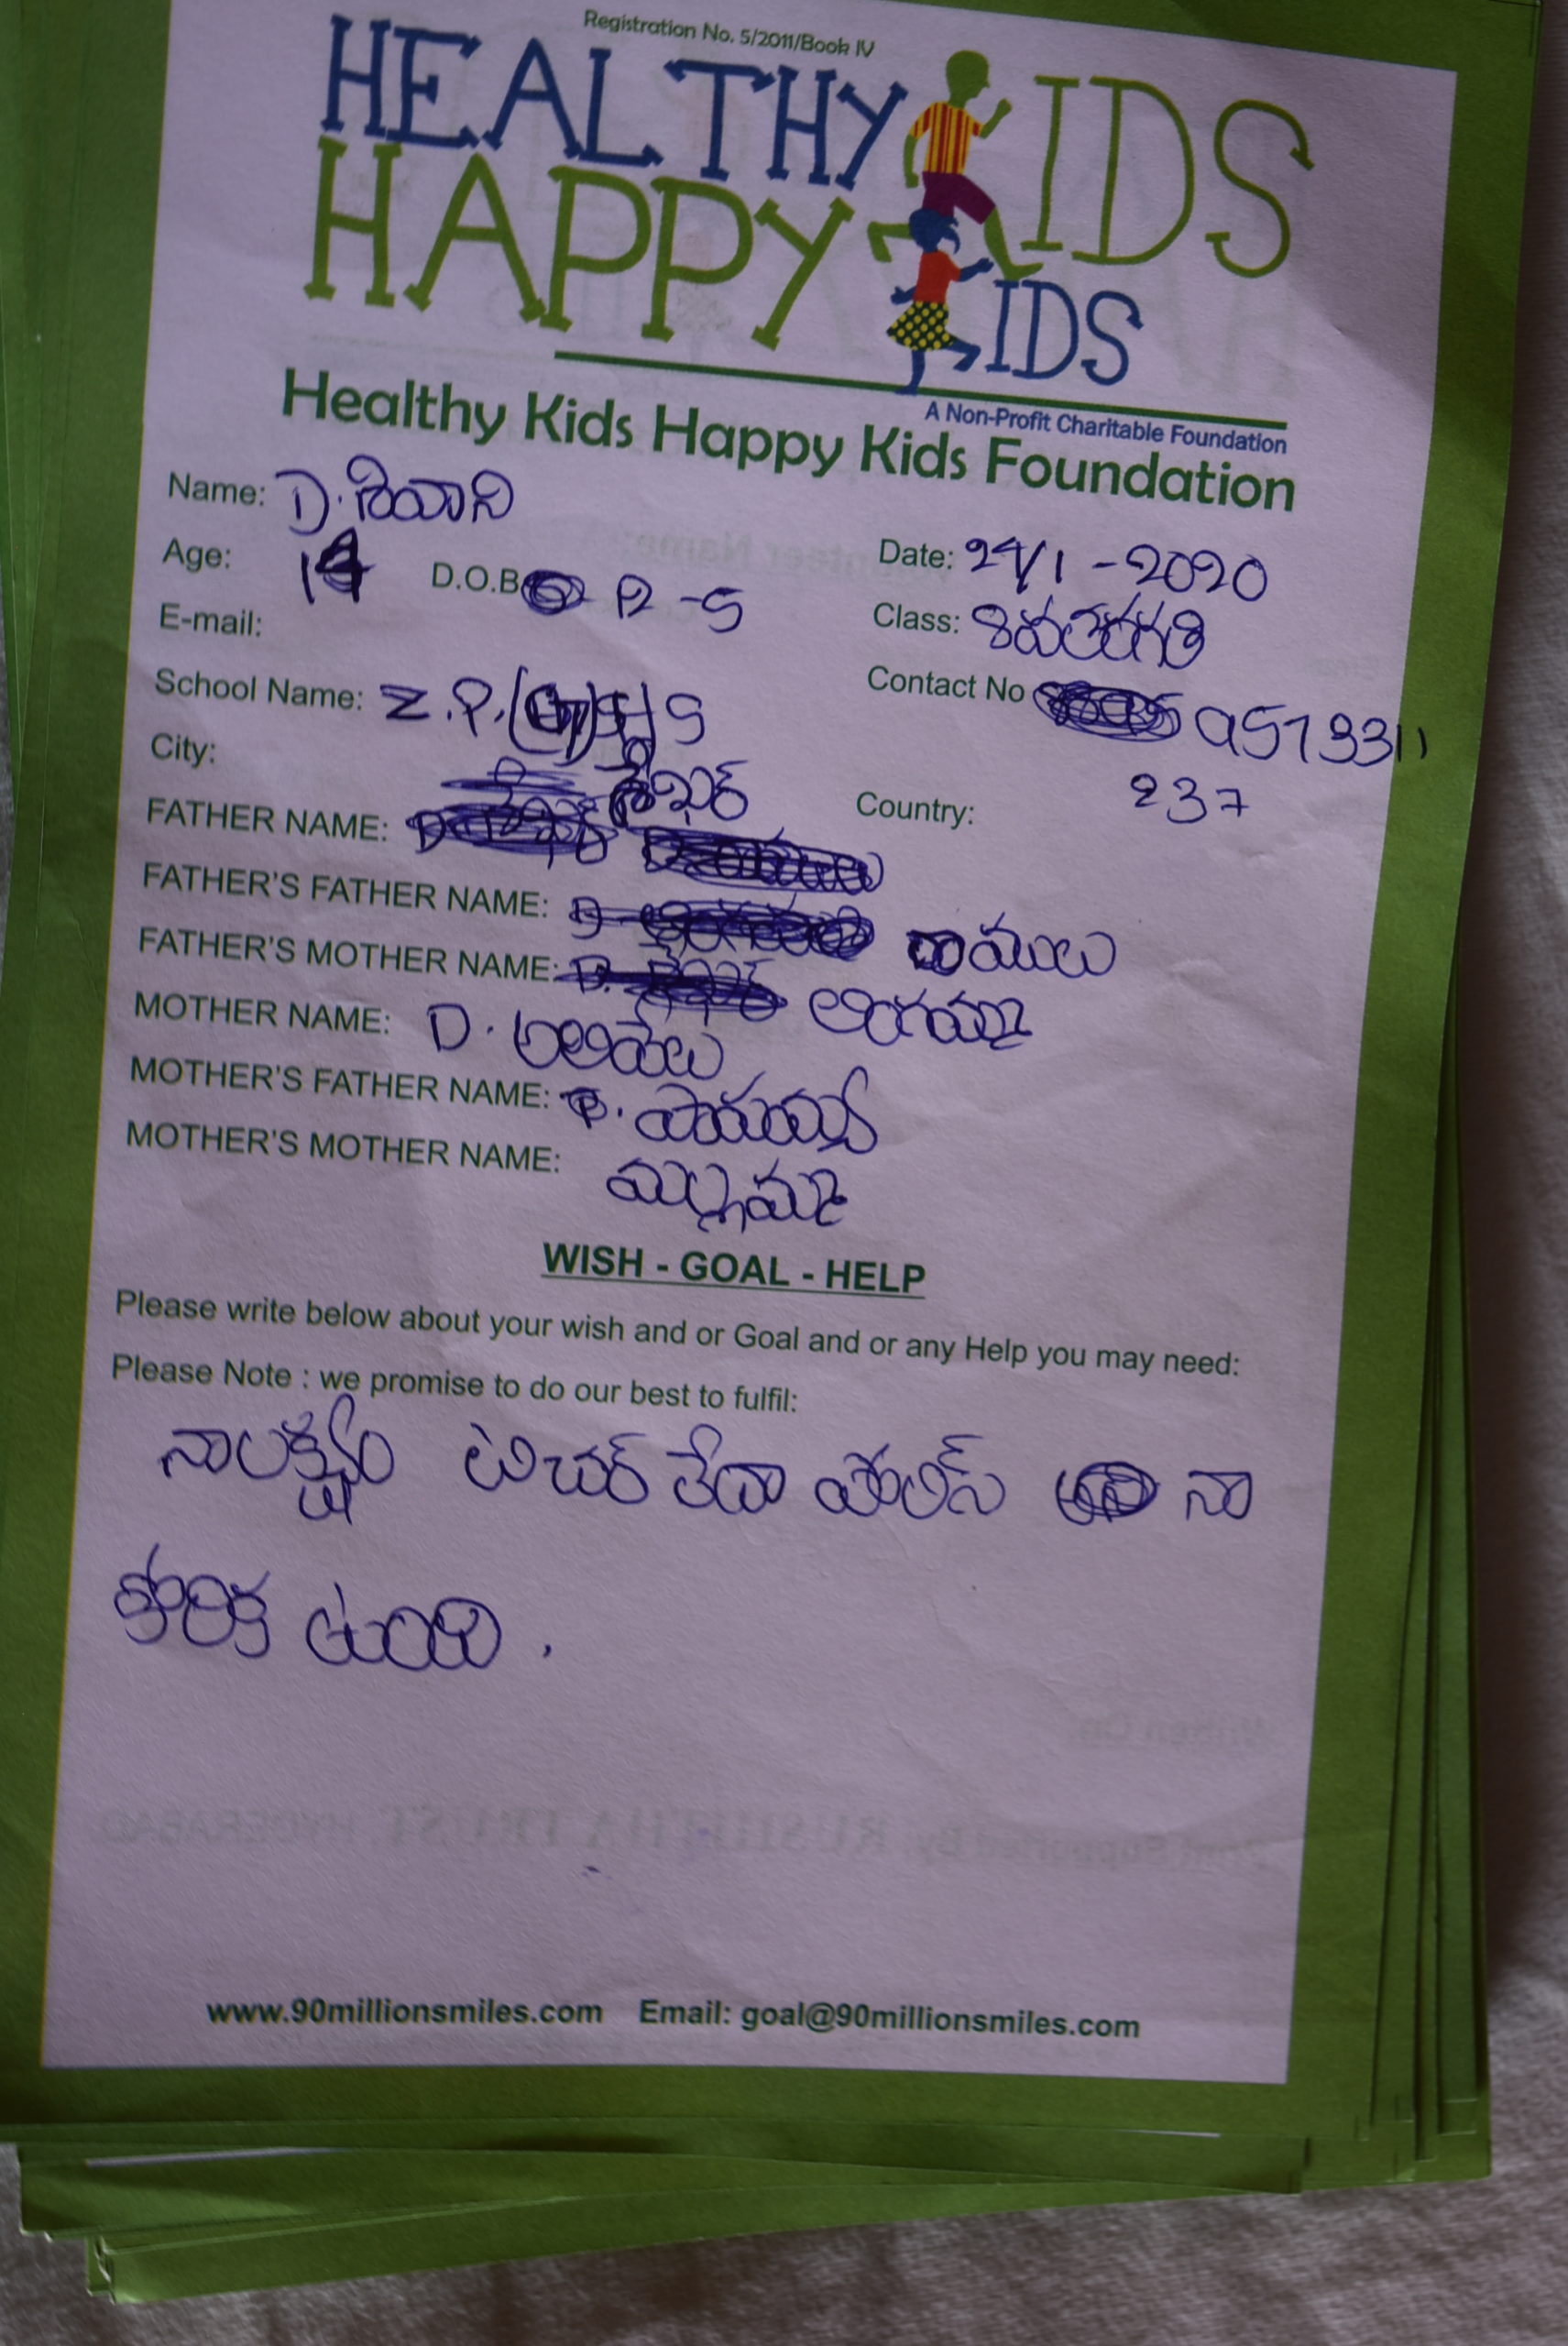 Registration No. 5/2011/Book IV
HEALTHY KIDS
HAPPY KIDS
A Non-Profit Charitable Foundation
Healthy Kids Happy Kids Foundation
Name: D. శివాని
Date: 24/1-2020
Age: 14 D.O.B 12-5
Class: 8వతరగతి
E-mail:
School Name: Z.P.(G)HS
Contact No 9573311
237
City:
Country:
FATHER NAME: శేఖర్
FATHER'S FATHER NAME: రాములు
FATHER'S MOTHER NAME: లింగమ్మ
MOTHER NAME: D. అలివేలు
MOTHER'S FATHER NAME:
MOTHER'S MOTHER NAME: మల్లమ్మ
WISH - GOAL - HELP
Please write below about your wish and or Goal and or any Help you may need:
Please Note : we promise to do our best to fulfil:
నా లక్ష్యం టిచర్ లేదా పోలిస్ నా
కోరిక ఉంది.
www.90millionsmiles.com Email: goal@90millionsmiles.com